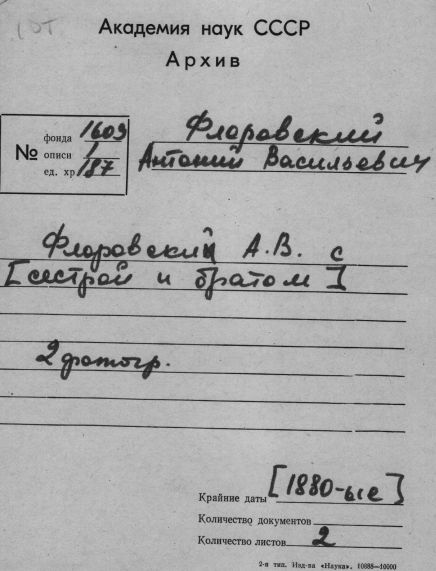 Академия наук СССР
Архив
фонда 1609
№ описи 1
ед. хр 187
Флоровский
Антоний Васильевич
Флоровский А.В. с
[сестрой и братом]
2 фотогр.
Крайние даты [1880-ые]
Количество документов
Количество листов 2
2-я тип. Изд-ва «Наука». 10688—10000